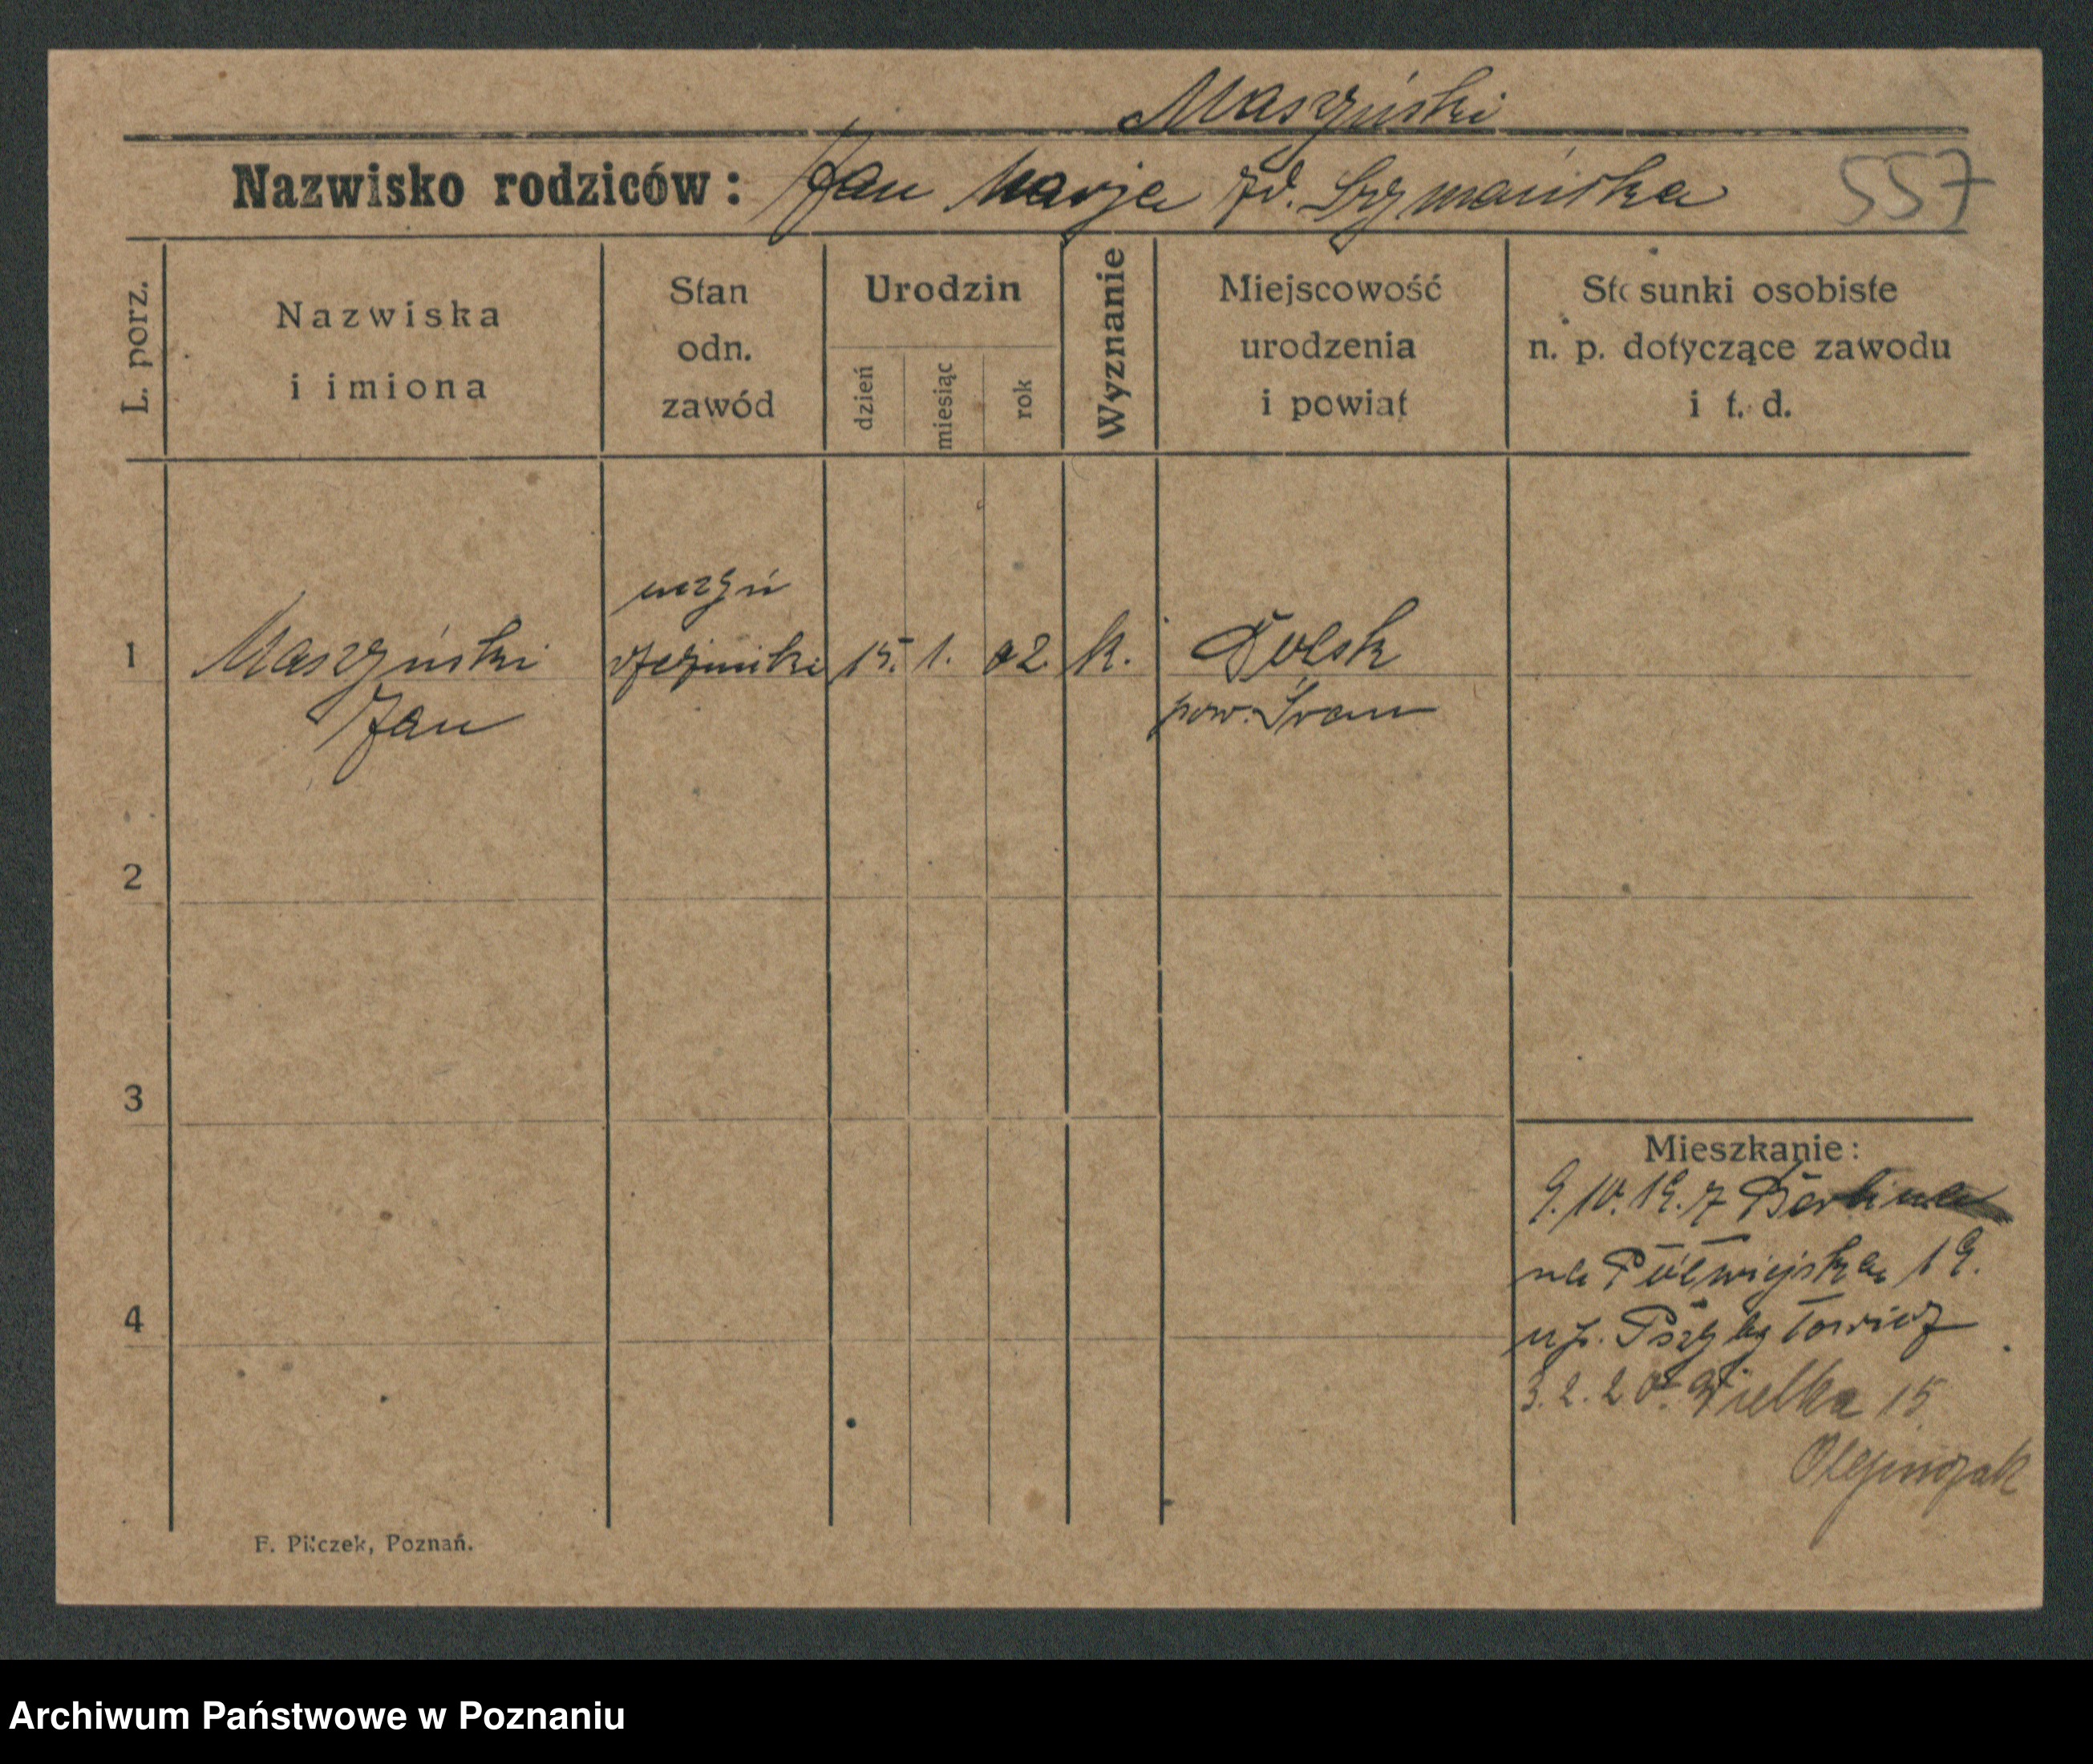 Maszyński
Nazwisko rodziców: Jan Marja zd. Szymańska 557
L. porz.
Nazwiska
i imiona
Stan
odn.
zawód
Urodzin
dzień
miesiąc
rok
Wyznanie
Miejscowość
urodzenia
i powiat
Stosunki osobiste
n. p. dotyczące zawodu
i t. d.
uczyń
1 Maszyński 15. 1. 02 k. Dolsk
Jan pow. Śrem
2
3
4
Mieszkanie:
9.10.19. z Berlina
na Półwiejska 19.
u p.
3.2.20. Wielka 15
Olejniczak
F. Pilczek, Poznań.
Archiwum Państwowe w Poznaniu